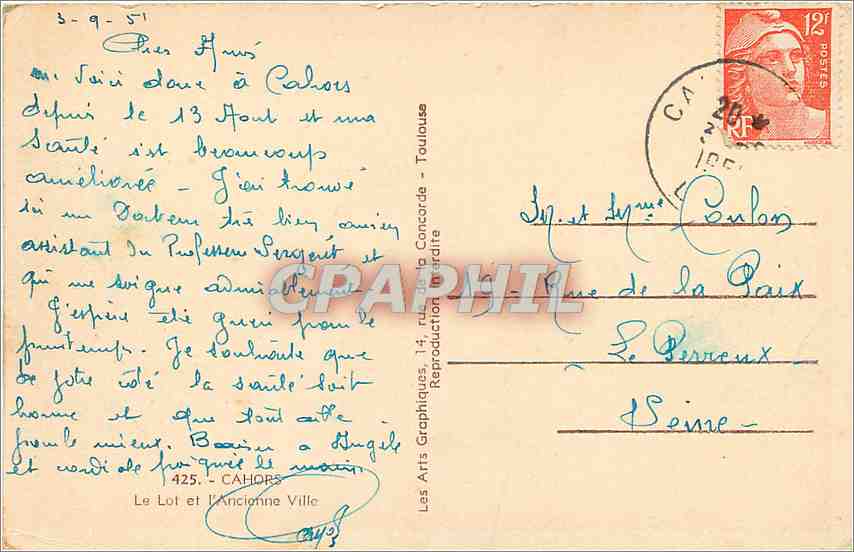 3-9-51
Chers Amis
Voici donc à Cahors
depuis le 13 Aout et ma
santé est beaucoup
améliorée - J'ai trouvé
ici un Docteur très bien, ancien
assistant du Professeur Sergent et
qui me soigne admirablement
J'espère être guéri pour le
printemps. Je souhaite que
de votre côté la santé soit
bonne et que tout aille
pour le mieux. Baiser a Angele
et cordiale poignée de mains
425. - CAHORS
Le Lot et l'Ancienne Ville
Les Arts Graphiques, 14, rue de la Concorde - Toulouse
Reproduction Interdite
12F
POSTES
RF
CA
20
M. et Mme Coulon
19 - Rue de la Paix
Le Perreux
Seine -
CPARHIL